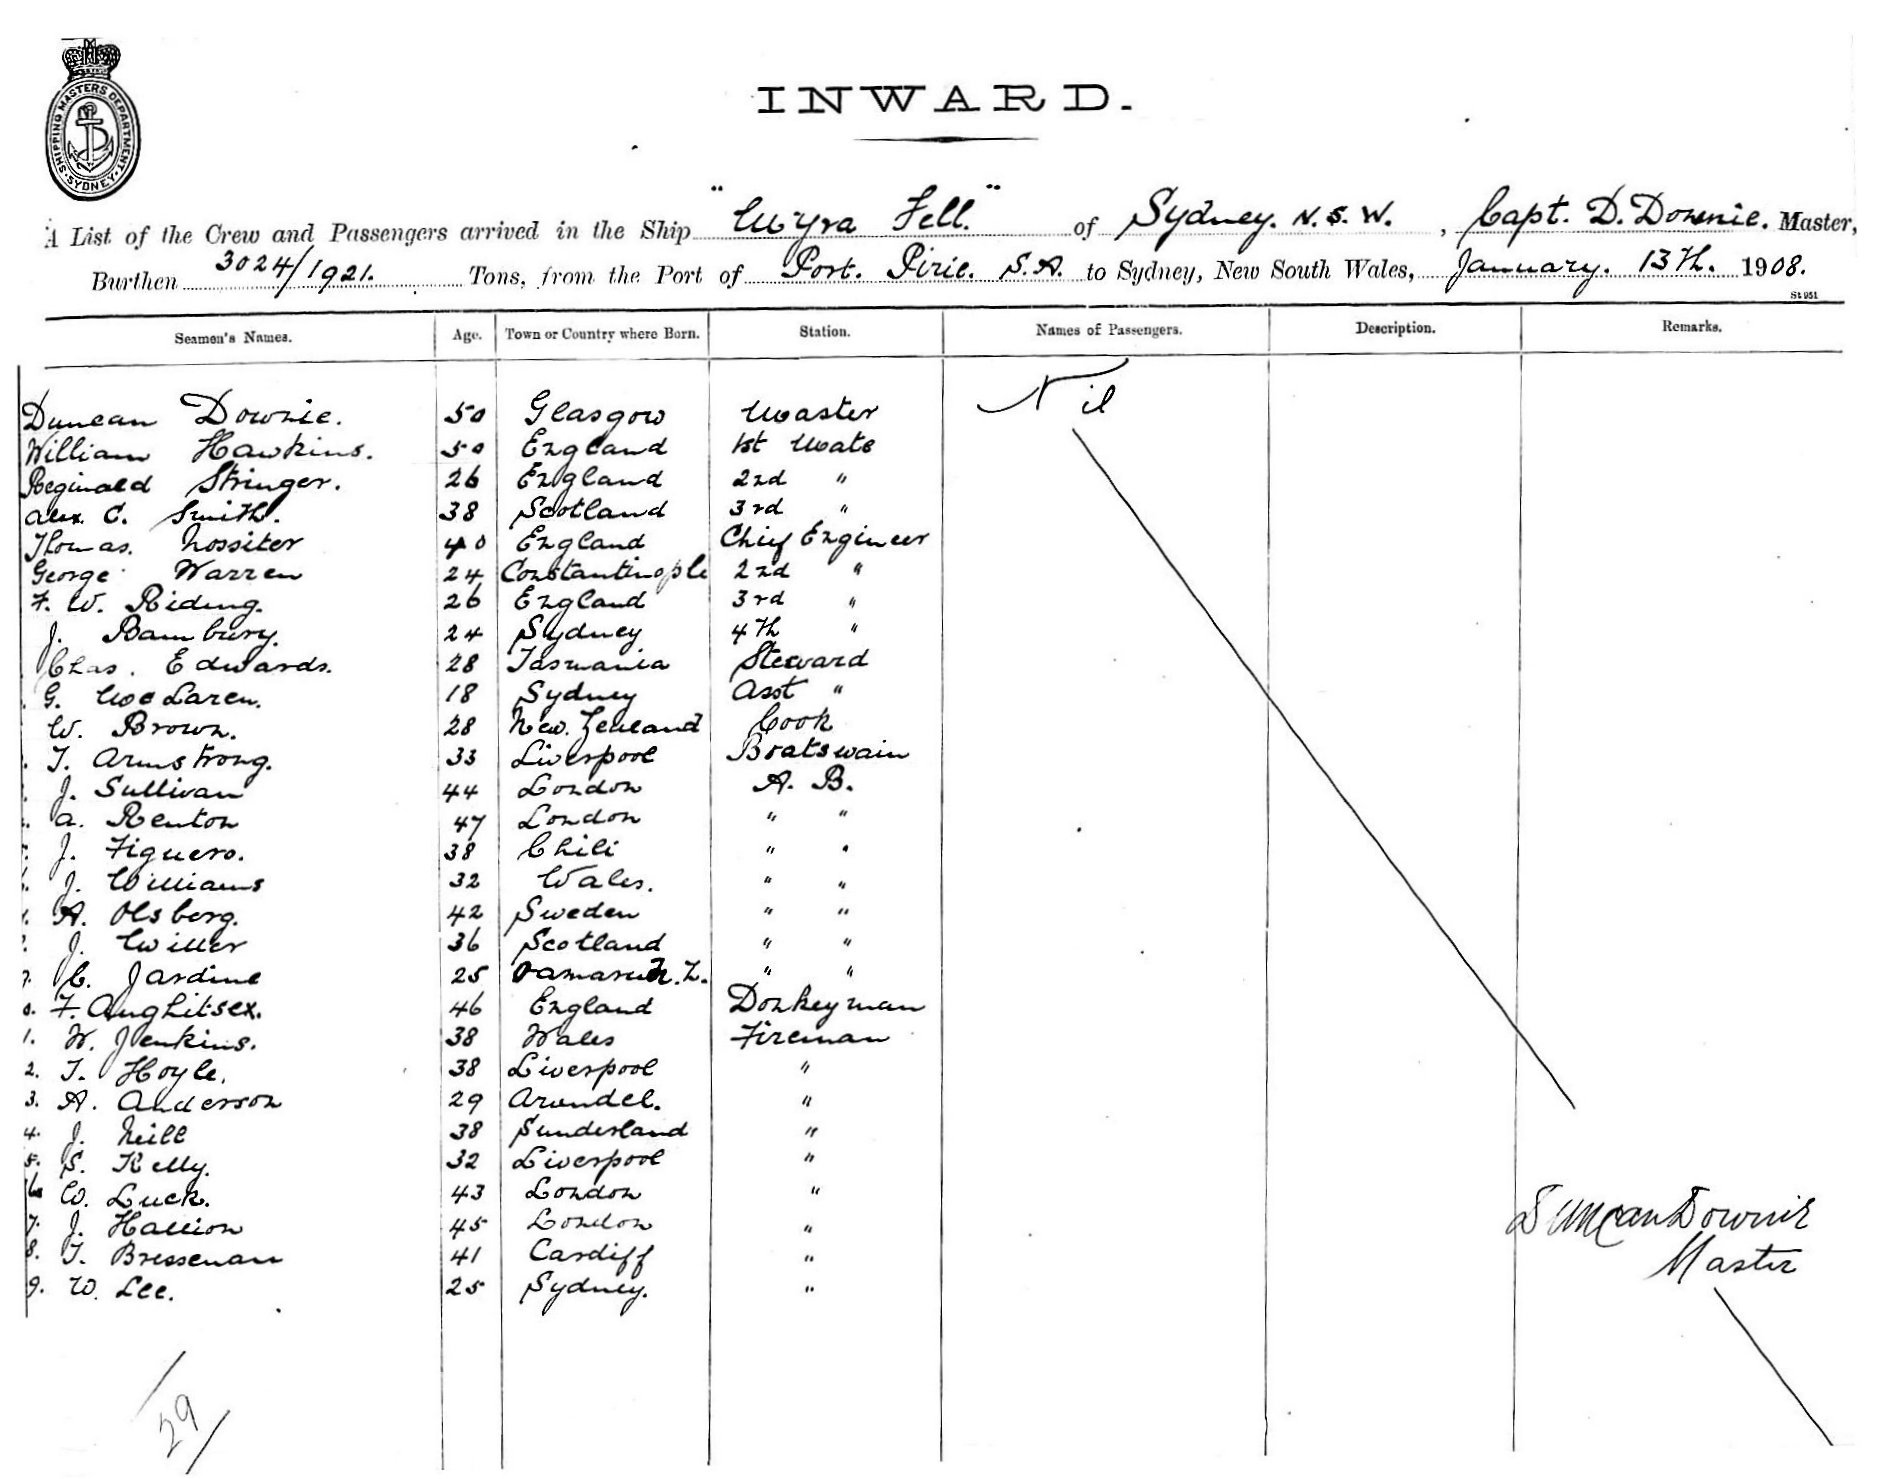 SHIPPING MASTERS DEPARTMENT. SYDNEY.
INWARD.
A List of the Crew and Passengers arrived in the Ship "Myra Fell." of Sydney. N.S.W., Capt. D. Downie. Master,
Burthen 3024/1921. Tons, from the Port of Port. Pirie. S.A. to Sydney, New South Wales, January. 13th. 1908.
St 951
Seamen's Names. Age. Town or Country where Born. Station. Names of Passengers. Description. Remarks.
Duncan Downie. 50 Glasgow Master Nil
William Hawkins. 50 England 1st Mate
Reginald Stringer. 26 England 2nd "
Alex. C. Smith. 38 Scotland 3rd "
Thomas. Nossiter 40 England Chief Engineer
George Warren 24 Constantinople 2nd "
F. W. Riding. 26 England 3rd "
J. Bambury. 24 Sydney 4th "
Chas. Edwards. 28 Tasmania Steward
G. McLaren. 18 Sydney Asst "
W. Brown. 28 New. Zealand Cook
T. Armstrong. 33 Liverpool Boatswain
J. Sullivan 44 London A. B.
A. Renton 47 London " "
J. Figuero. 38 Chili " "
J. Williams 32 Wales. " "
A. Olsberg. 42 Sweden " "
J. Willer 36 Scotland " "
C. Jardine 25 Oamaru N.Z. " "
0. F. 46 England Donkeyman
1. W. Jenkins. 38 Wales Fireman
2. T. Hoyle. 38 Liverpool "
3. A. Anderson 29 Arundel. "
4. J. Neill 38 Sunderland "
5. S. Kelly. 32 Liverpool "
6. W. Luck. 43 London "
7. J. Hallion 45 London "
8. T. Bressenan 41 Cardiff "
9. W. Lee. 25 Sydney. "
Duncan Downie
Master
29